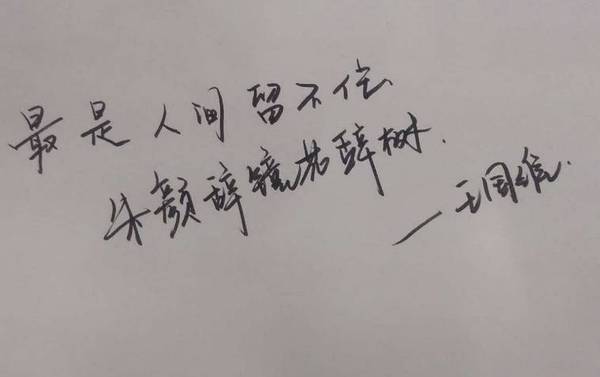 最是人间留不住、
朱颜辞镜花辞树.
—王国维.